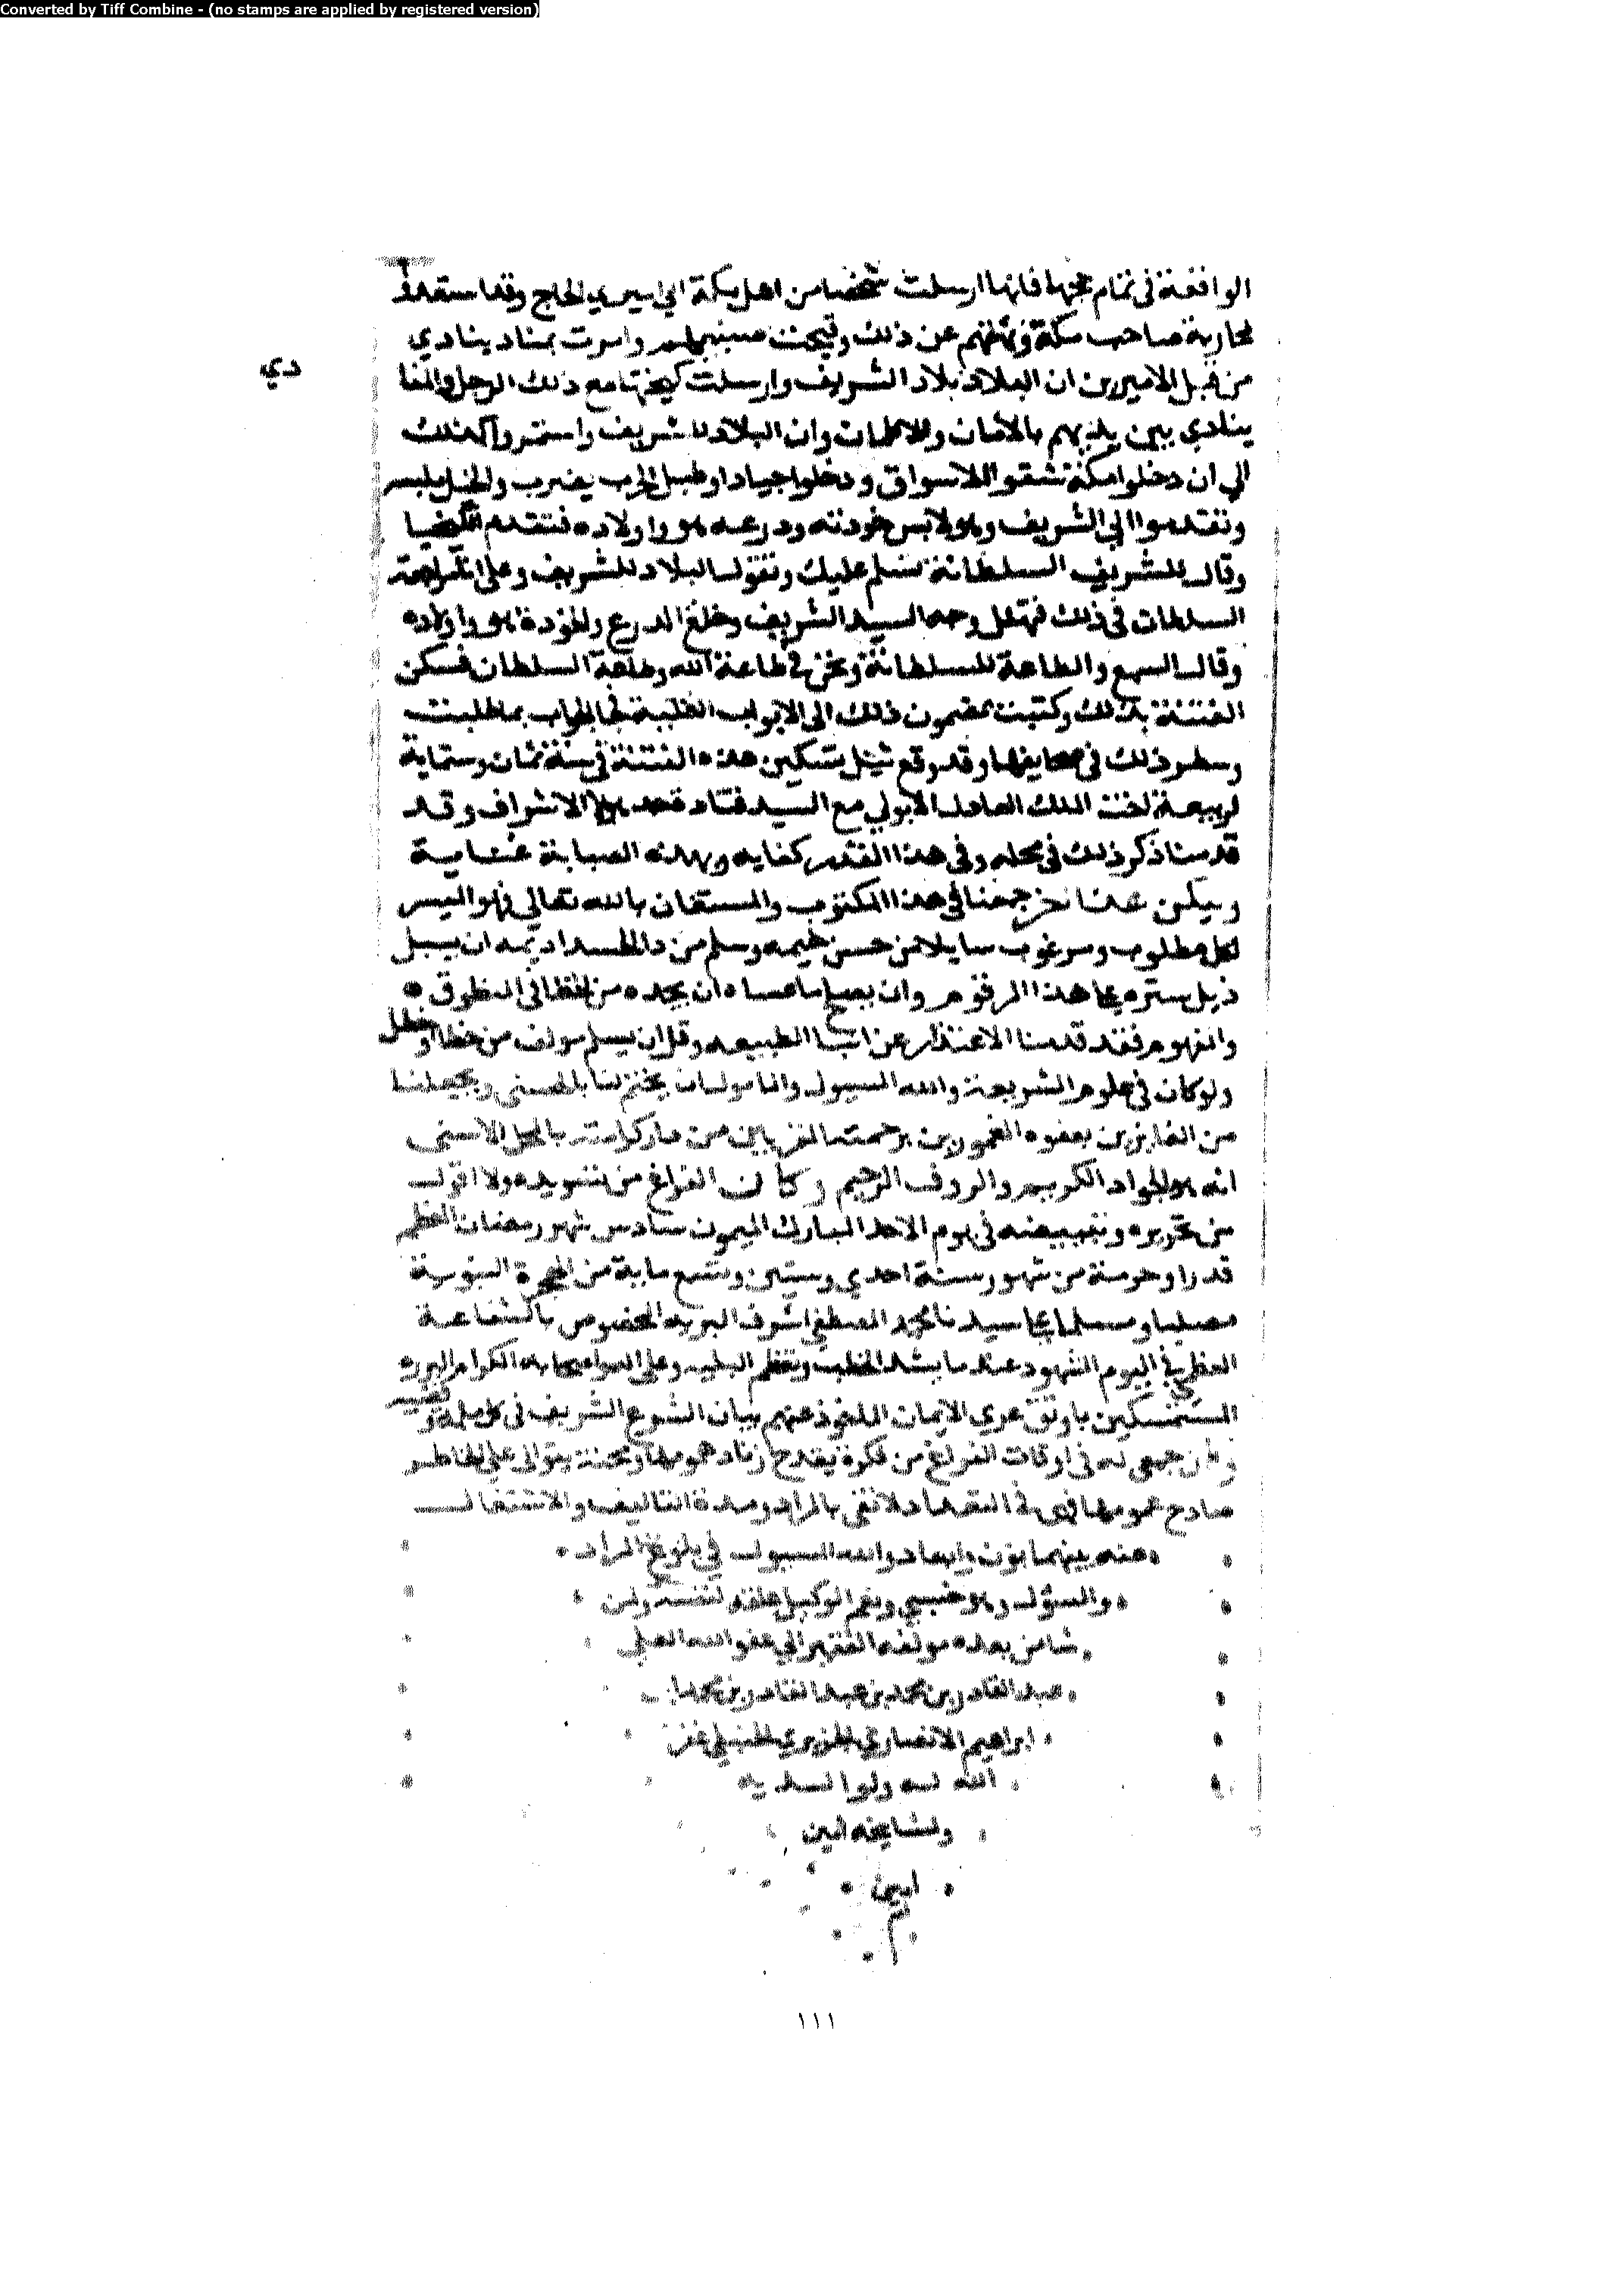 Converted by Tiff Combine - (no stamps are applied by registered version)
الواقعة في تمام حجتها فانها ارسلت شخصا من اهل مكة الي اميري الحاج وقد استعدوا
لمحاربة صاحب مكة ونهتهم عن ذلك وقبحت وامرت بمناد ينادي
من قبل الاميرين ان البلاد بلاد الشريف وارسلت مع ذلك الرجل والمنا
دي
ينادي بين يديهم بالامان والاطمان وان البلاد للشريف واستمروا كذلك
الي ان دخلوا مكة شقوا الاسواق ودخلوا جياد او طبل الحرب يضرب والخيل ملبس
وتقدموا الي الشريف وهو لابس خودته ودرعه هو واولاده فتقدم
وقال للشريف السلطانة تسلم عليك وتقول البلاد للشريف وعلي مراجعة
السلطان في ذلك فتهلل وجه السيد الشريف وخلع الدرع والخودة هو واولاده
وقال السمع والطاعة للسلطانة ونحن في طاعة الله وطاعة السلطان فسكن
الفتنة بذلك وكتبت بمضمون ذلك الي الابواب فجا الجواب بما طلبت
وسطر ذلك في صحايفها وقد وقع مثل تسكين هذه الفتنة في سنة ثمان وستماية
لربيعة اخت الملك العادل الايوبي مع السيد قتادة الاشراف وقد
قدمنا ذكر ذلك في محله وفي هذا القدر كفايه وبهذه الصبابة ختامية
وليكن هذا اخر جمعنا في هذا المكتوب والمستعان بالله تعالي فهو الميسر
لكل مطلوب ومرغوب سايلا من حسن خيمه وسلم من دا الحسد اديمه ان يسبل
ذيل ستره علي هذا المرقوم وان يصلح ما عساه ان يجده من الخطا في المنطوق
والمفهوم فقد قدمنا الاعتذار عن الطبيعه وقل ان يسلم مولف من خطا او خطل
ولو كان في علوم الشريعة والله المسيول والمامول ان يختم لنا بالحسني ويجعلنا
من الفايزين بعفوه المغمورين برحمته من دار كرامته بالمحل الاسني
انه هو الجواد الكريم والروف الرحيم وكان الفراغ من تسويده ولا اقول
من تحريره وتبييضه في يوم الاحد المبارك الميمون سادس شهر رمضان المعظم
قدرا وحرمة من شهور سنة احدي وستين وتسع ماية من الهجرة النبوية
مصليا ومسلما علي سيدنا محمد المصطفي اشرف البريه المخصوص بالشفاعة
العظمي في اليوم المشهود عند ما يشتد الخطب وتعظم البليه وعلي اله واصحابه الكرام البرره
المستمسكين باوثق عري الايمان الماخوذ عنهم بيان الشرع الشريف في كل
وكان جمعي له في اوقات الفراغ من فكرة يقدح زناد همومها ومحنة يتوالي علي الخاطر
صادح غمومها فهي في التعداد لا تفي بالمراد ومدة التاليف والاشتغال
عنه بينهما بون وابعاد والله المسيول في بلوغ المراد
والمسؤل وهو حسبي ونعم الوكيل علقه لنفسه ولمن
شا من بعده مولفه الفقير الي عفو الله العلي
عبد القادر بن محمد بن عبد القادر بن محمد بن
ابراهيم الانصاري الجزيري الحنبلي غفر
الله له ولوالديه
ولمشايخه امين
امين
م
١١١